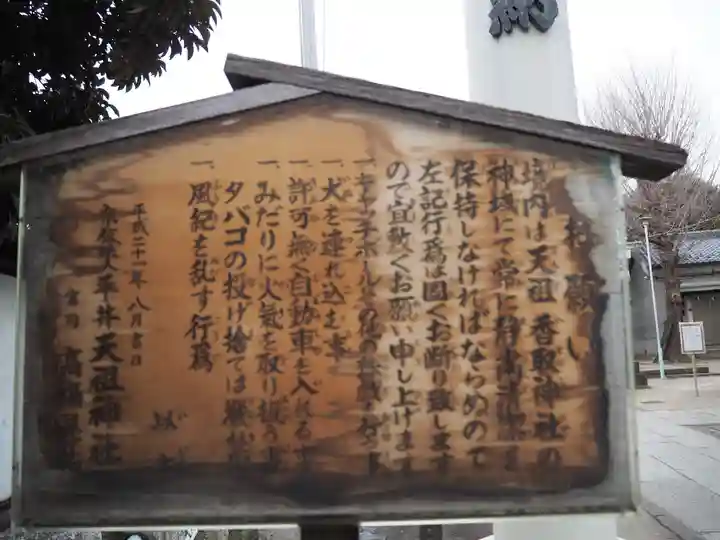 納
お願い
境内は天祖香取神社の
神域にて常に
保持しなければならぬので
左記行為は固くお断り致します
ので宜敷くお願い申し上げます
一、キャッチボール其の他の
一、犬を連れ込む事
一、許可無く自動車を入れる事
一、みだりに火気を取り扱う事
タバコの投げ捨ては
一、風紀を乱す行為
平成二十一年 八月吉日
平井天祖神社
宮司